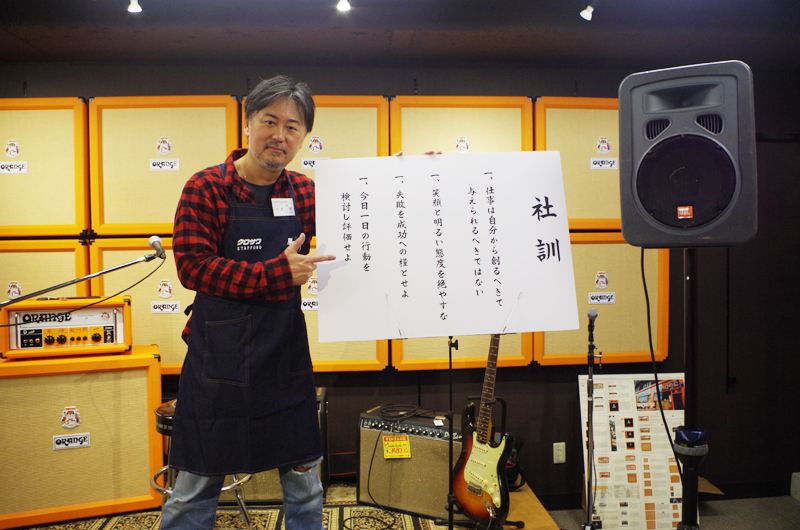 社訓
一、仕事は自分から創るべきで
与えられるべきではない
一、笑顔と明るい態度を絶やすな
一、失敗を成功への糧とせよ
一、今日一日の行動を
検討し評価せよ
クロサワ
STAFFORD
ORANGE
ORANGE
ORANGE
ORANGE
ORANGE
ORANGE
ORANGE
ORANGE
ORANGE
ORANGE
JBL